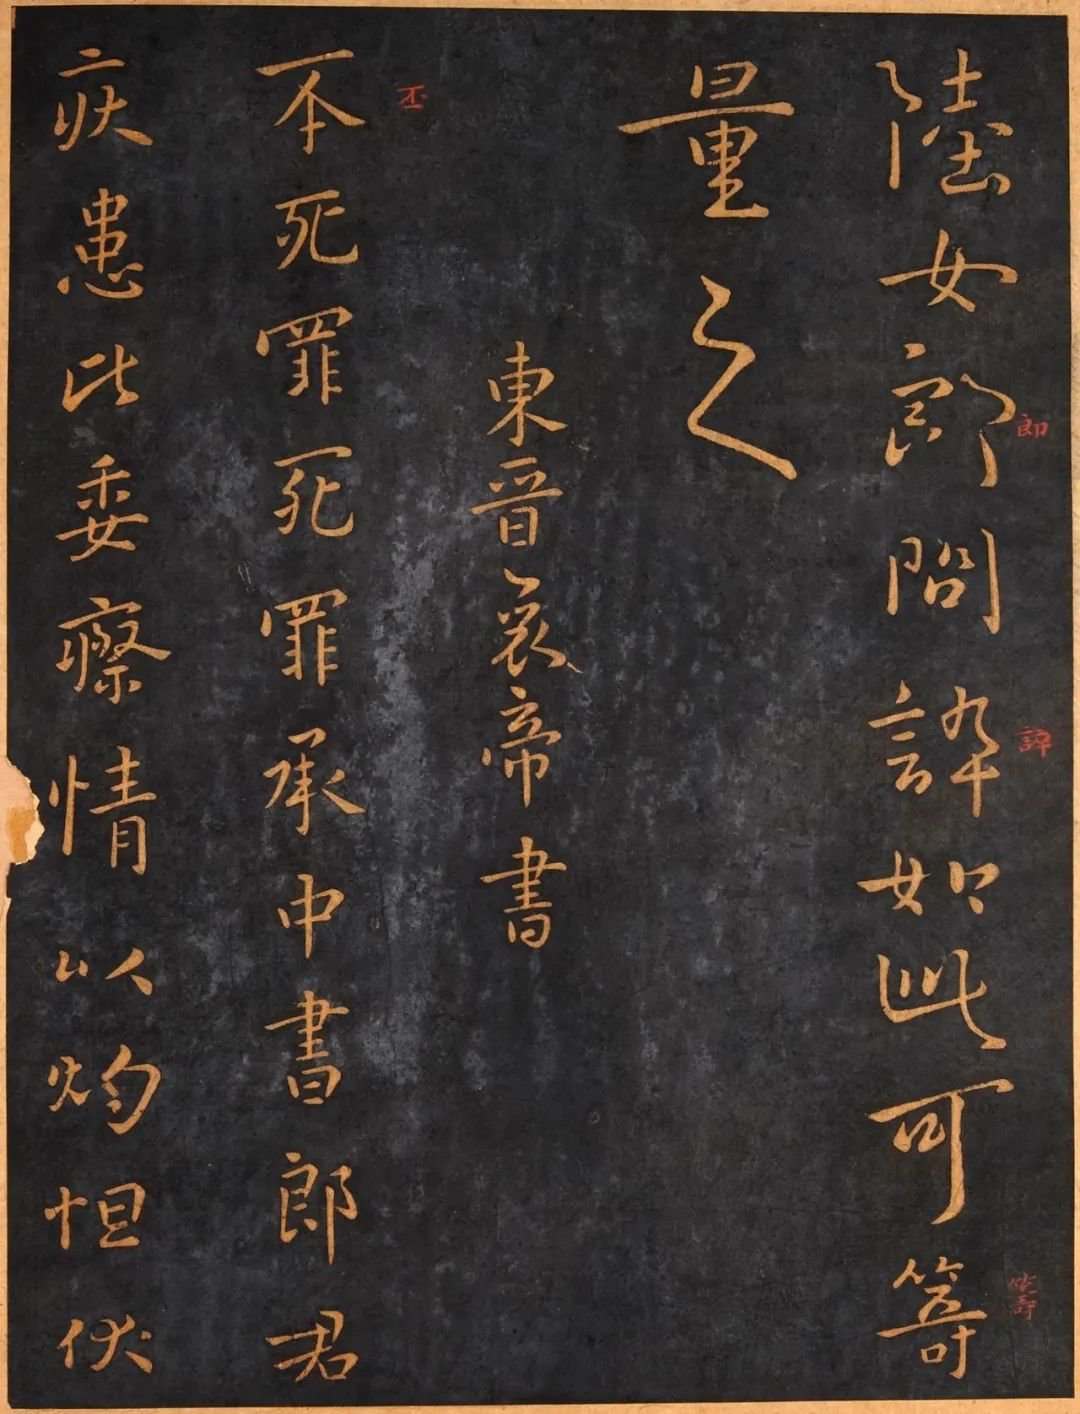 陸女郎問誶如此可籌
量之
東晉哀帝書
丕死罪死罪承中書郎君
疾患比委瘵情以灼怛伏
即
誶
籌
丕